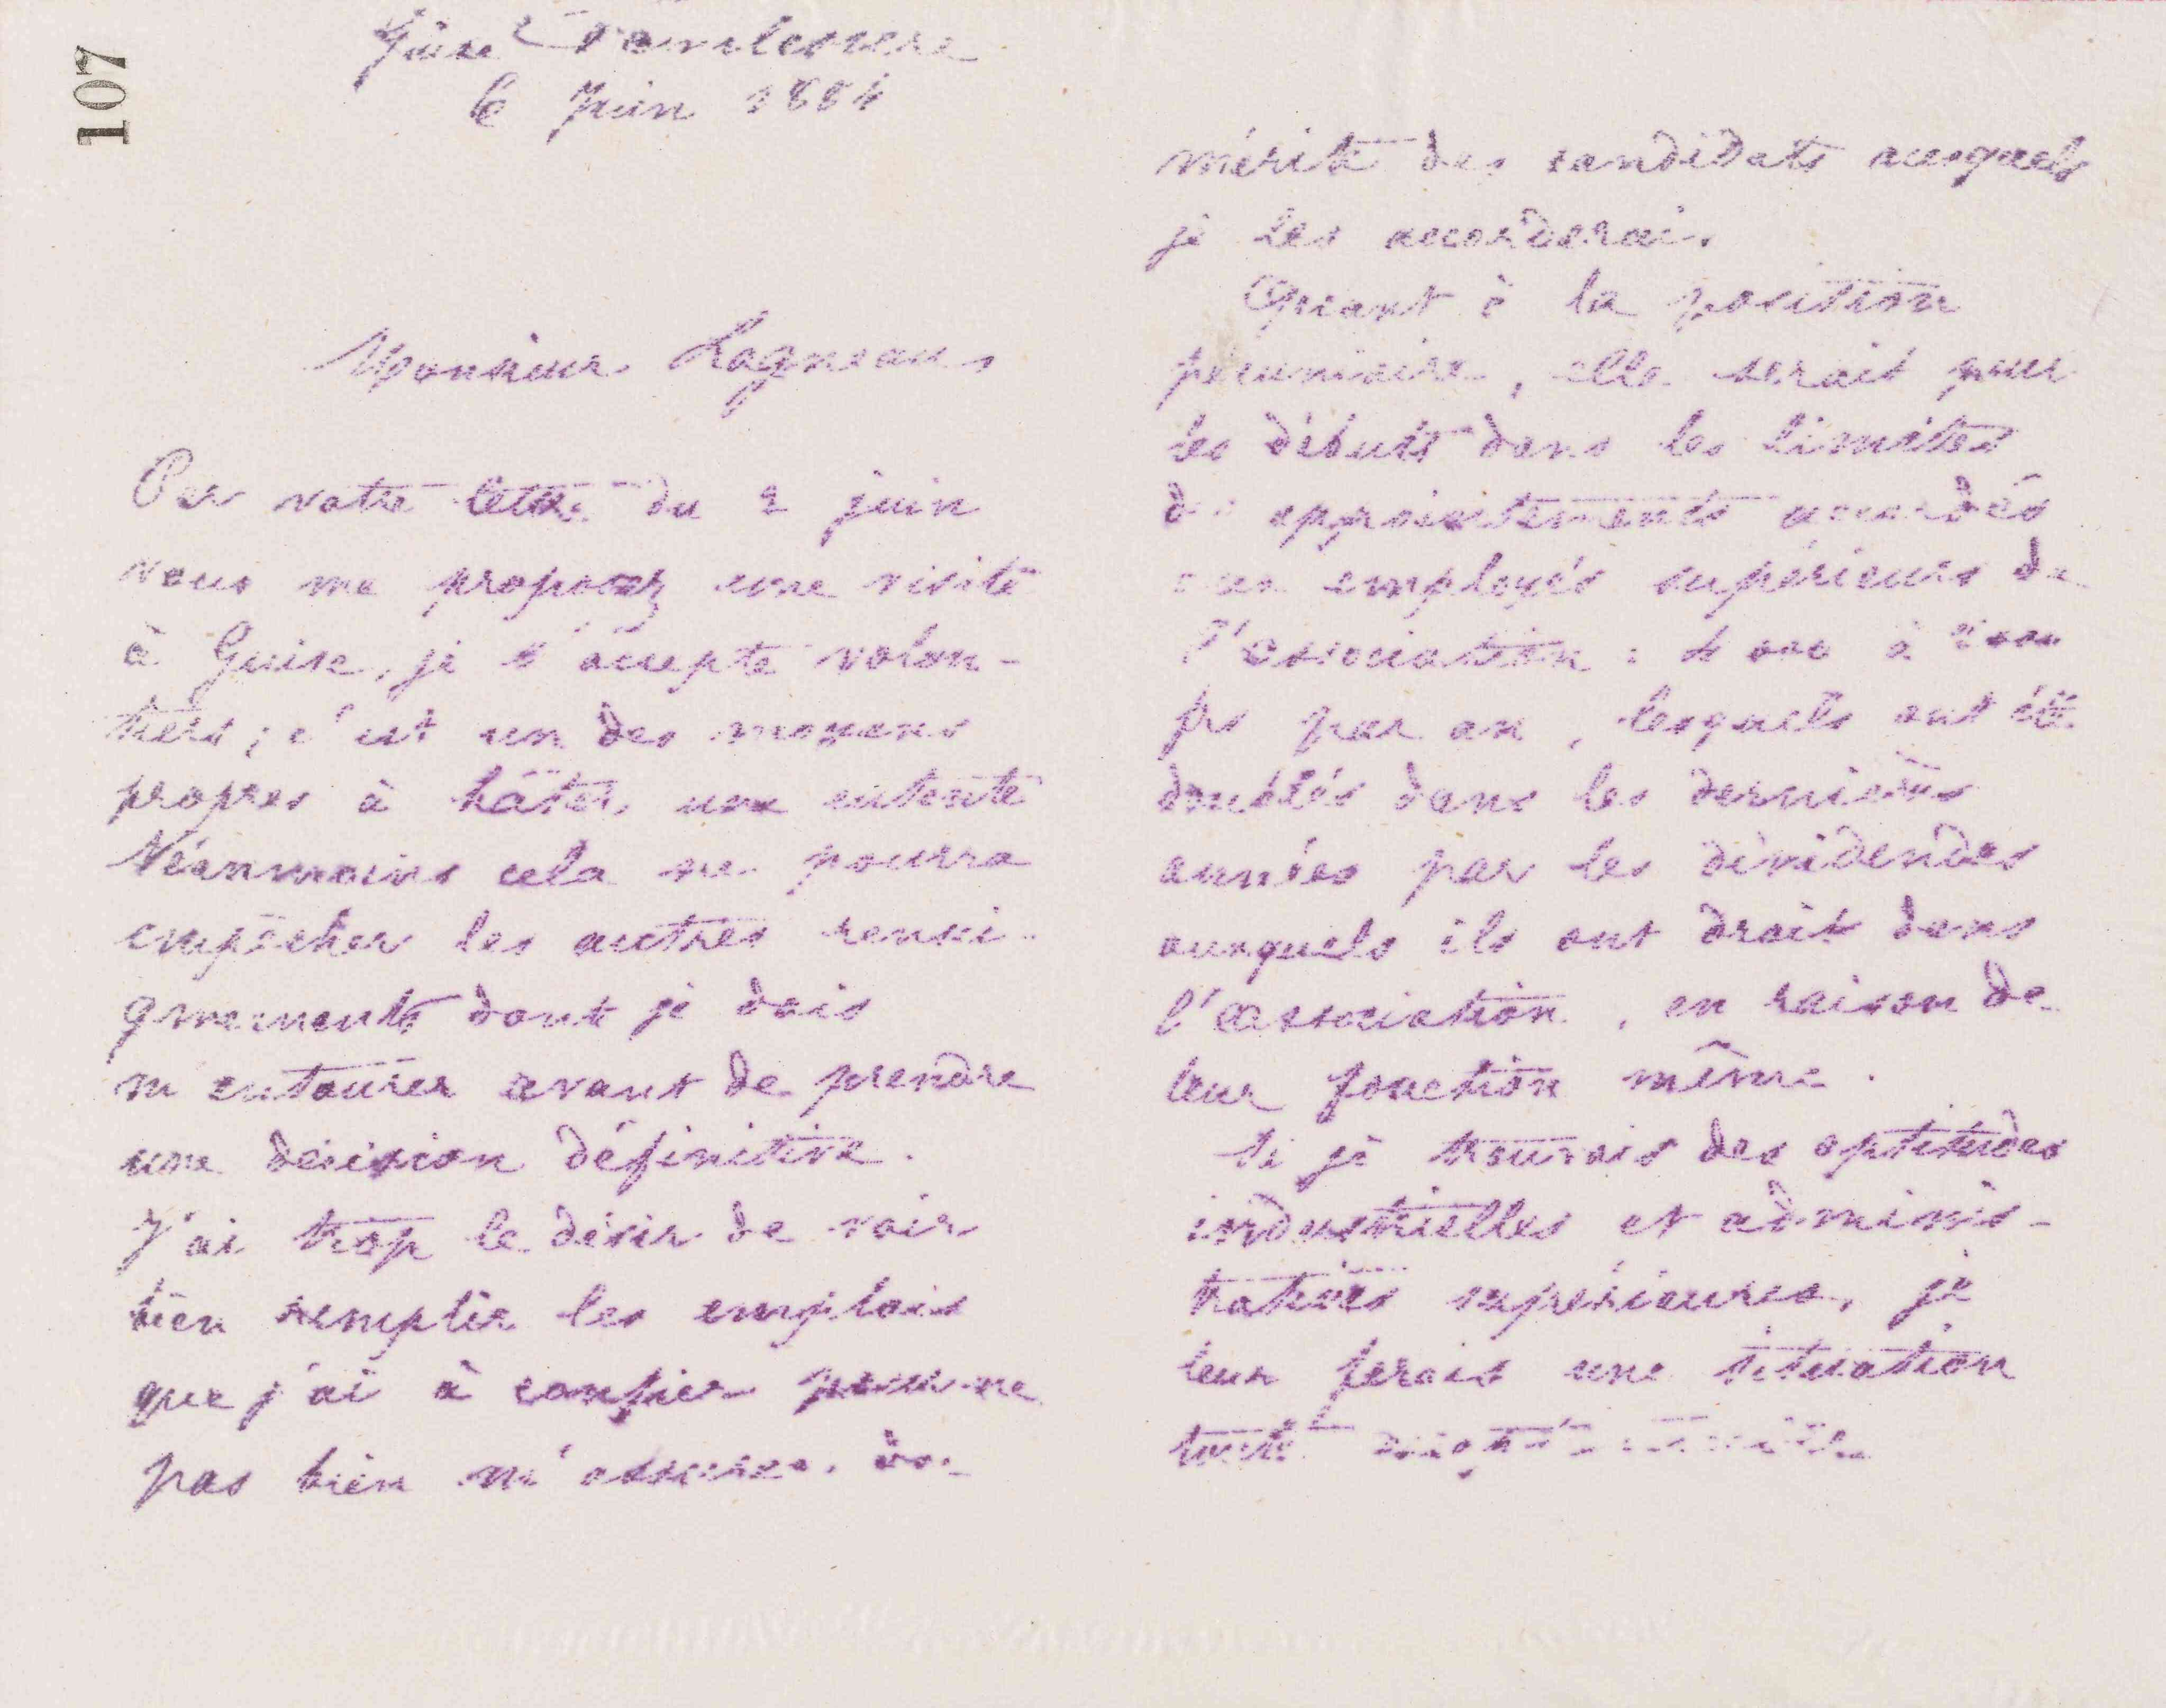 107
Guise Familistère
6 Juin 1884
Monsieur Lagneau,
Par votre lettre du 2 juin
vous me proposez une visite
à Guise, je l'accepte volon-
tiers ; c'est un des moyens
propres à hâter une entente
Néanmoins cela ne pourra
empêcher les autres rensei-
gnements dont je dois
m'entourer avant de prendre
une décision définitive.
J'ai trop le désir de voir
bien remplir les emplois
que j'ai à confier pour ne
pas bien m'assurer du
mérite des candidats auxquels
je les accorderai.
Quant à la position
pécuniaire, elle serait pour
les débuts dans les limites
des appointements accordés
aux employés supérieurs de
l'association :
frs par an, lesquels ont été
doublés dans les dernières
années par les dividendes
auxquels ils ont droit dans
l'association, en raison de
leur fonction même.
Si je trouvais des aptitudes
industrielles et adminis-
tratives supérieures, je
leur ferais une situation
toute